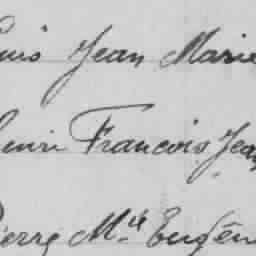 Louis Jean Marie
Henri Francois Jean
Pierre Mie Eugène